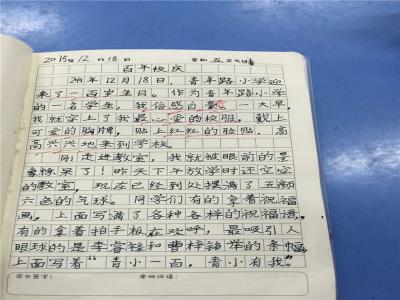 2015年12月18日 星期五 天气晴
百年校庆
2015年12月18日，青年路小学迎
来了一百岁生日。作为青年路小学
的一名学生，我倍感自豪。一大早，
我就穿上了我最心爱的校服，戴上
可爱的胸牌，贴上红红的脸贴，高
高兴兴地来到学校。
刚走进教室，我就被眼前的景
象惊呆了！昨天下午放学时还空空
的教室，现在已经到处摆满了五颜
六色的气球。同学们有的拿着祝福
画，上面写满了各种各样的祝福语，
有的拿着拍手板在欢呼，最吸引人
眼球的是李睿铭和曹梓铭举的条幅，
上面写着“青小一面，青小有我”。
家长签字： 老师评语：